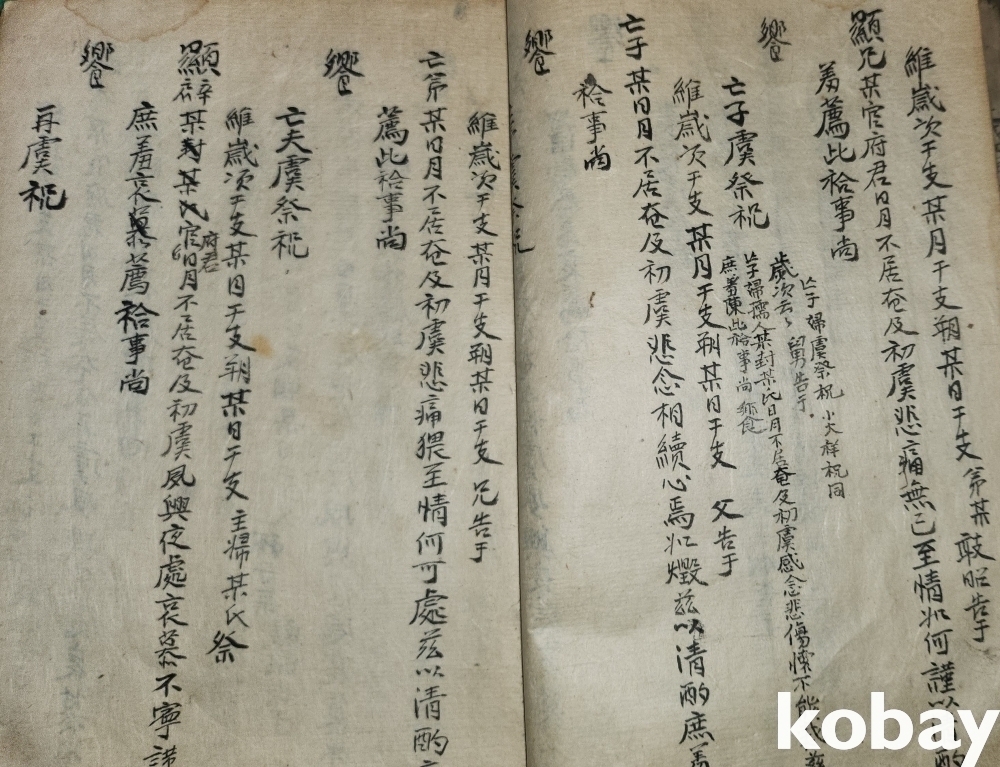 維歲次干支某月干支朔某日干支 弟某 敢昭告于
顯兄某官府君日月不居奄及初虞悲痛無已至情如何謹以淸酌
羞薦此祫事尙
饗
亡子婦虞祭祝 小大祥祝同
歲次云〻 舅告于
亡子婦孺人某封某氏日月不居奄及初虞感念悲傷懷不能
庶羞陳此祫事尙 饗
亡子虞祭祝
維歲次干支某月干支朔某日干支 父告于
亡子某日月不居奄及初虞悲念相續心焉如燬玆以淸酌庶羞
祫事尙
饗
維歲次干支某月干支朔某日干支 兄告于
亡弟某日月不居奄及初虞悲痛猥至情何可處玆以淸酌
薦此祫事尙
饗
亡夫虞祭祝
維歲次干支某月干支朔某日干支 主婦某氏 祭
顯辟某封某氏官府君日月不居奄及初虞夙興夜處哀慕不寧謹
庶羞哀薦祫事尙
饗
再虞祝
kobay